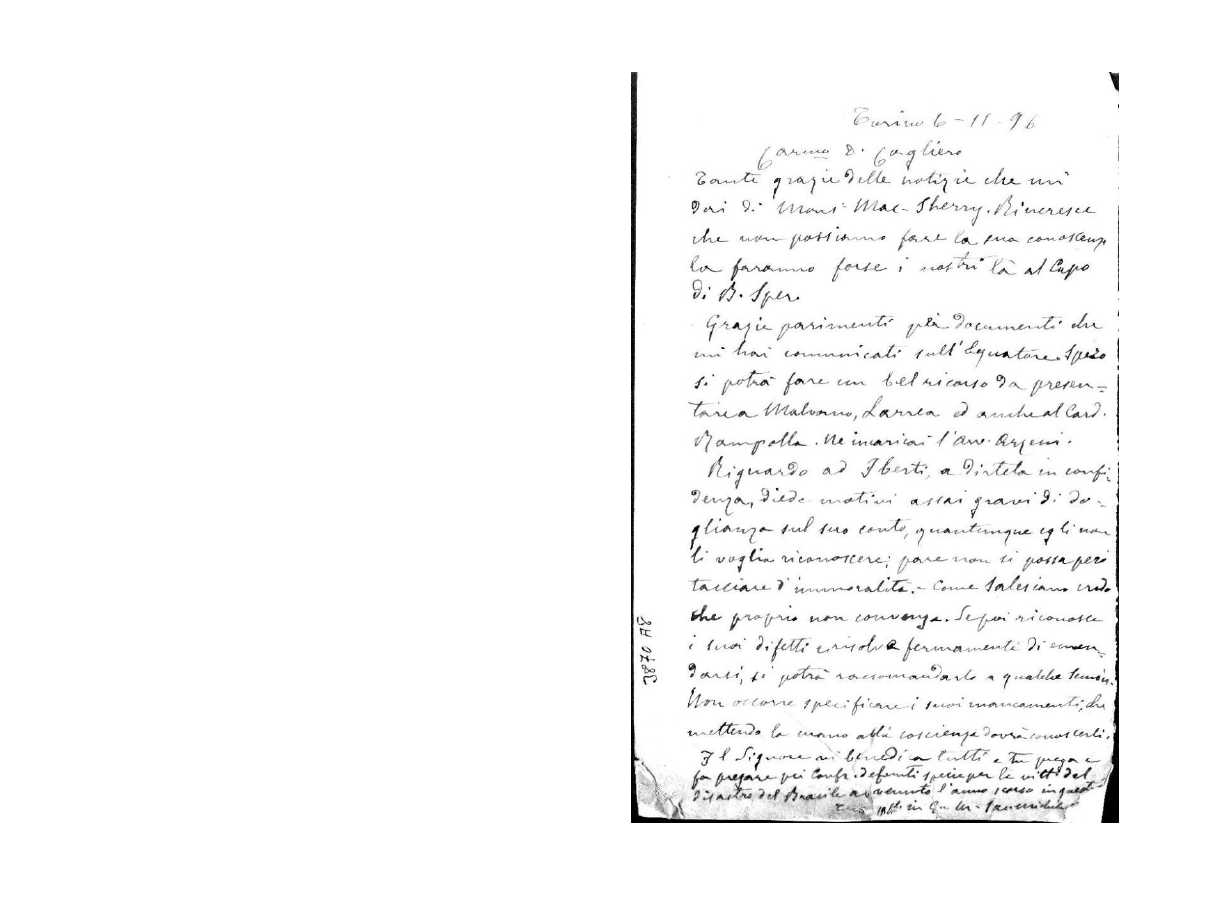 Torino 6-11-96
Carmo D. Cagliero
Tante grazie delle notizie che mi
dai di Mons. Mac-Sherry. Rincresce
che non possiamo fare la sua conoscenza
la faranno forse i nostri là al Capo
di B. Sper.
Grazie parimenti pei documenti che
mi hai comunicati sull'Equatore. Spero
si potrà fare un bel ricorso da presen=
tare a Malvano, Larrea ed anche al Card.
Rampolla. Ne incaricai l'avv.
Riguardo ad Iberti, a dirtela in confi=
denza, diede motivi assai gravi di do=
glianza sul suo conto, quantunque egli non
li voglia riconoscere; pare non si possa però
tacciare d'immoralità.- Come Salesiano credo
che proprio non convenga. Se poi riconosce
i suoi difetti e risolve fermamente di emen=
darsi, si potrà raccomandarlo a qualche Semin.
Non occorre specificare i suoi mancamenti, che
mettendo la mano alla coscienza dovrà conoscerli.
Il Signore vi benedica tutti e tu prega e
fa pregare pei Confr. defunti specie per le vitt. del
disastro del Brasile avvenuto l'anno scorso in questo
in
3870 A8